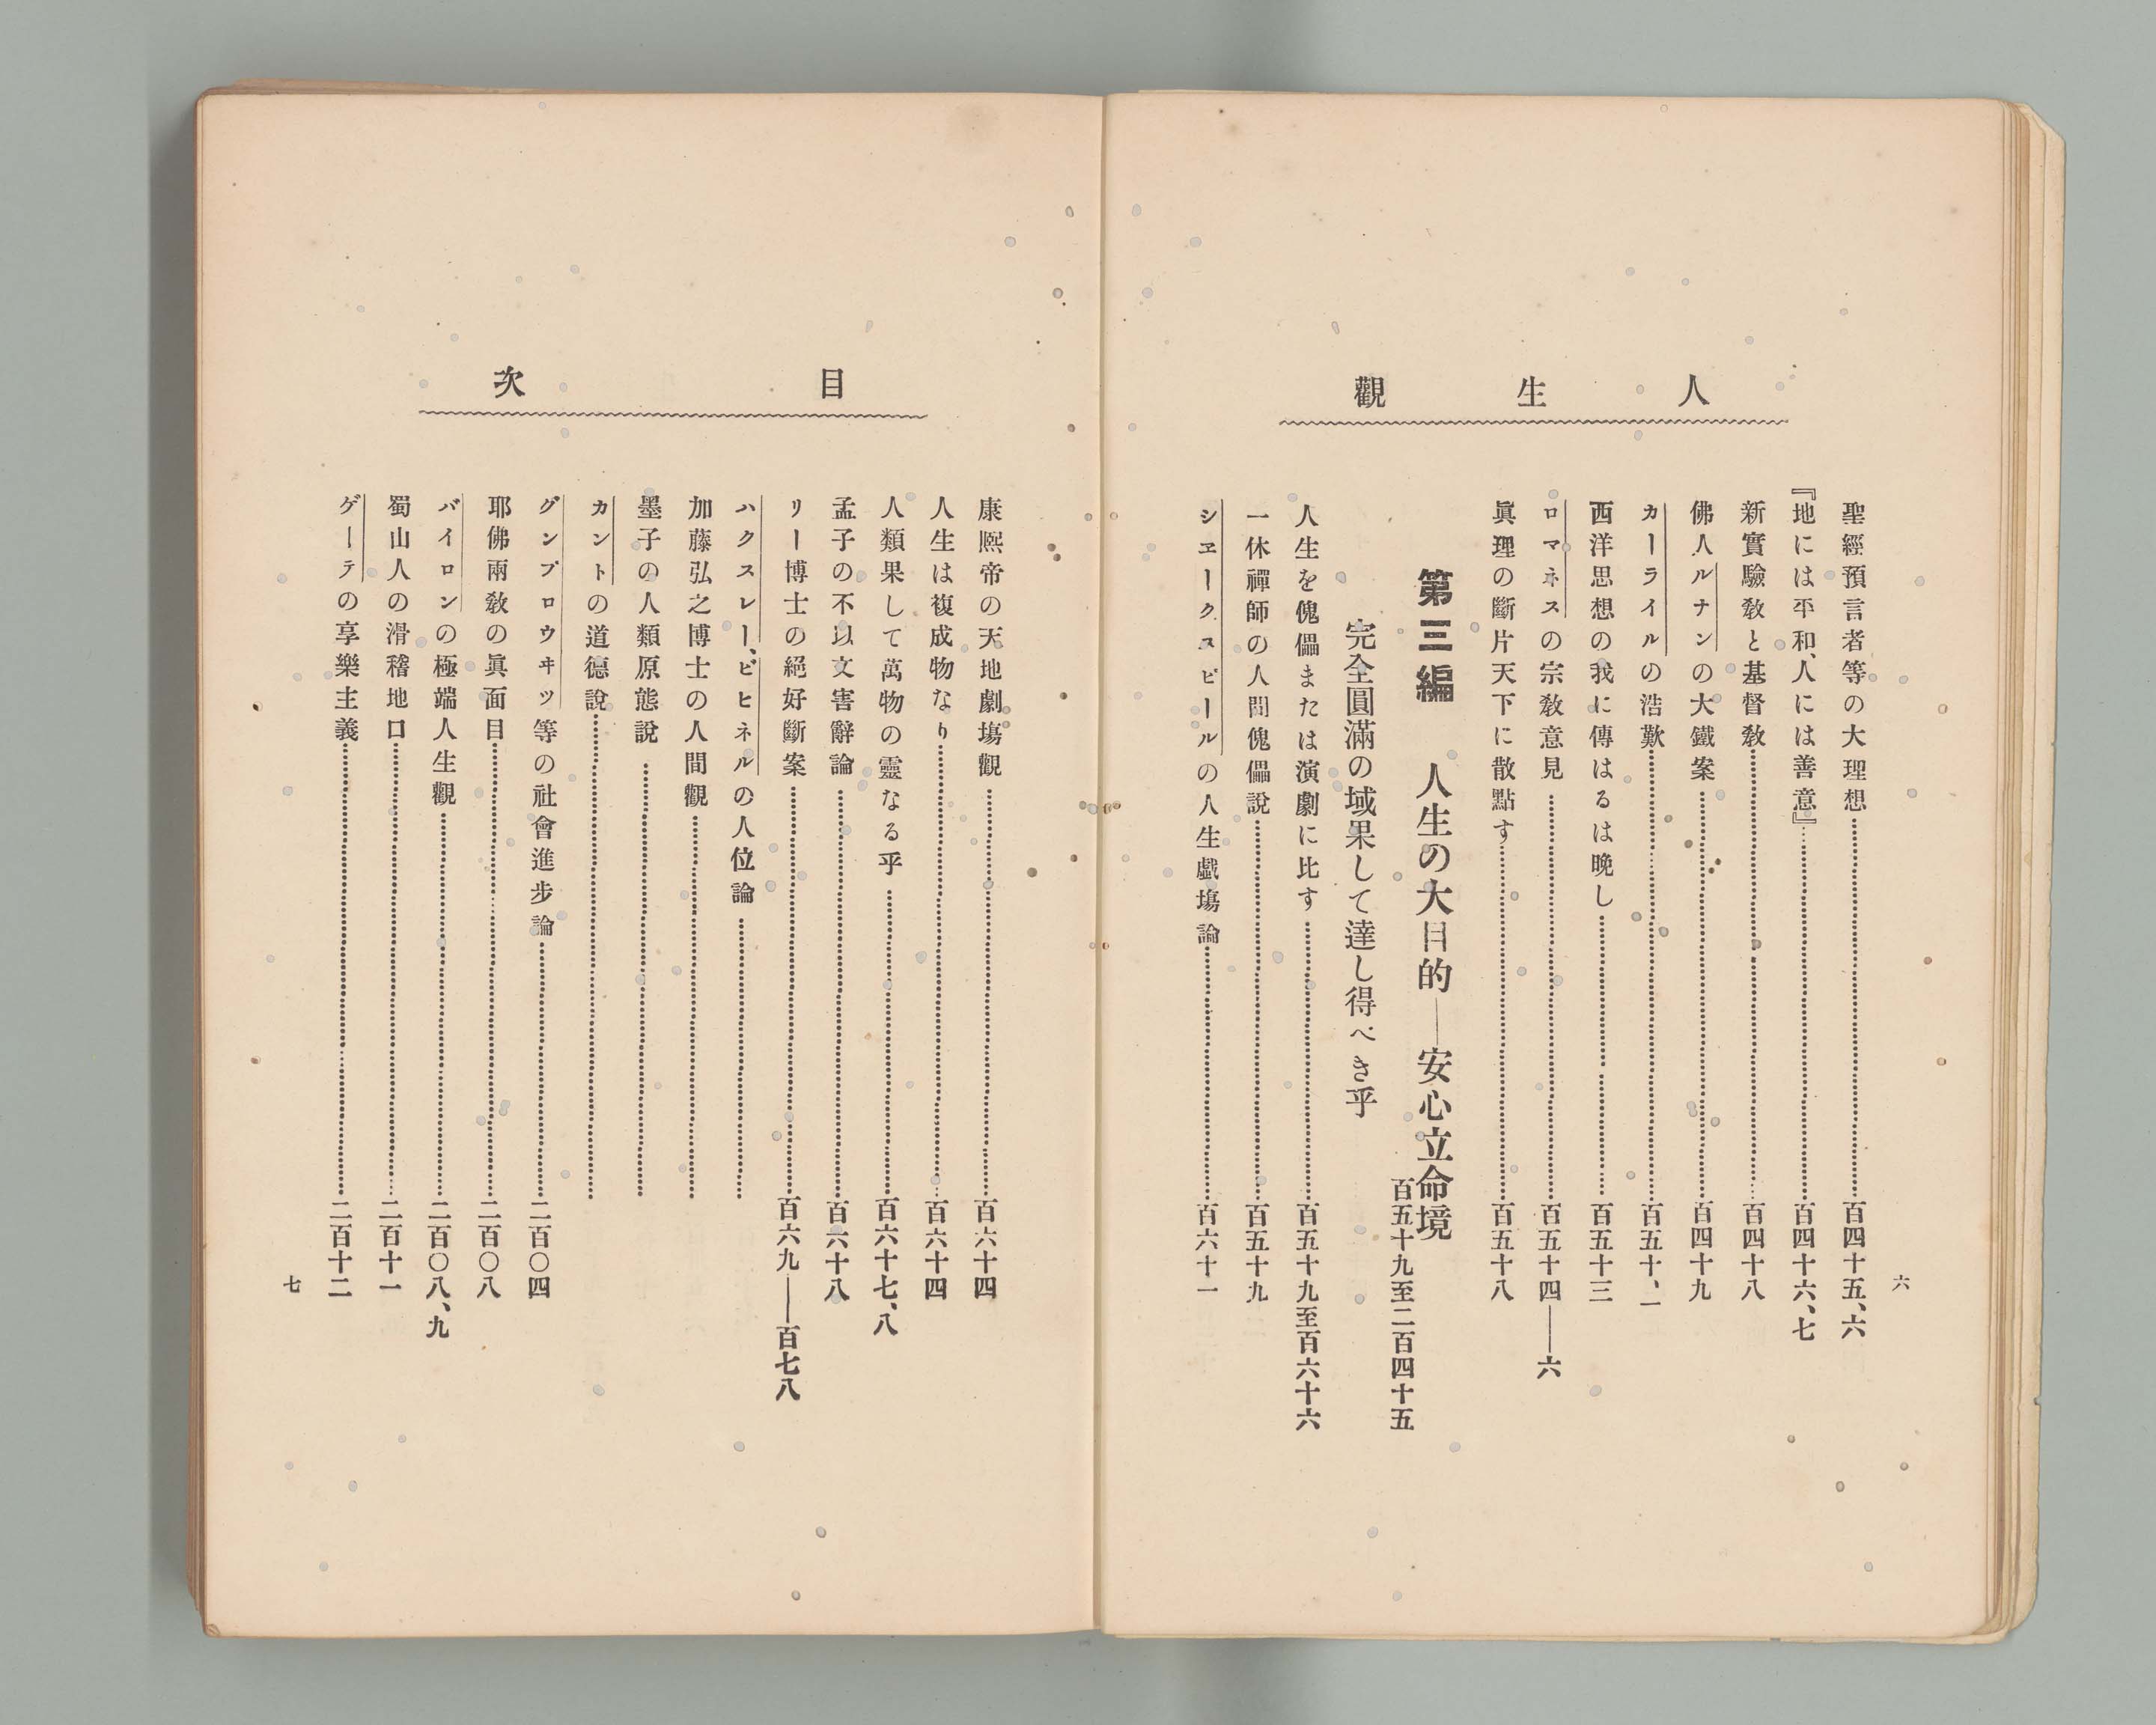 人生觀
聖經預言者等の大理想……百四十五、六
『地には平和、人には善意』……百四十六、七
新實驗敎と基督敎……百四十八
佛人ルナンの大鐵案……百四十九
カーライルの浩歎……百五十、一
西洋思想の我に傳はるは晩し……百五十三
ロマネスの宗敎意見……百五十四――六
眞理の斷片天下に散點す……百五十八
第三編　人生の大目的――安心立命境
百五十九至二百四十五
完全圓滿の域果して達し得べき乎
人生を傀儡または演劇に比す……百五十九至百六十六
一休禪師の人間傀儡說……百五十九
シヱークスピールの人生戲塲論……百六十一
六
目次
康熈帝の天地劇塲觀……百六十四
人生は複成物なり……百六十四
人類果して萬物の靈なる乎……百六十七、八
孟子の不以文害辭論……百六十八
リー博士の絕好斷案……百六九――百七八
ハクスレー、ビヒネルの人位論……
加藤弘之博士の人間觀……
墨子の人類原態說……
カントの道德說……
グンプロウヰツ等の社會進步論……二百〇四
耶佛兩敎の眞面目……二百〇八
バイロンの極端人生觀……二百〇八、九
蜀山人の滑稽地口……二百十一
ゲーテの享樂主義……二百十二
七